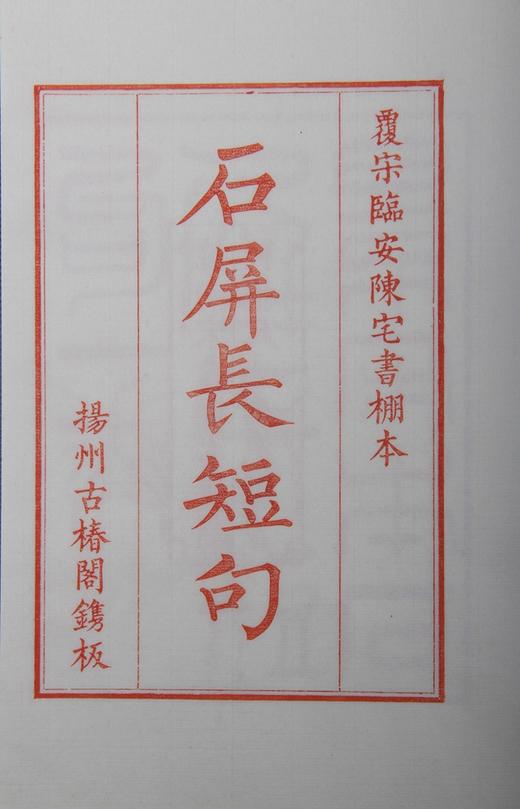 覆宋臨安陳宅書棚本
石屏長短句
揚州古椿閣鐫板